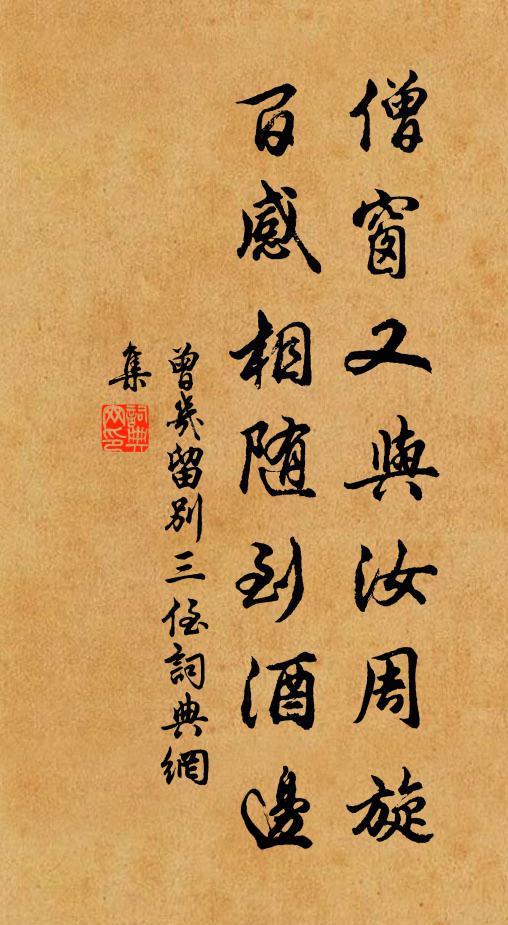 僧窗又與汝周旋
百感相随到酒邊
曾幾留別三侄詞典網
集
詞典網印